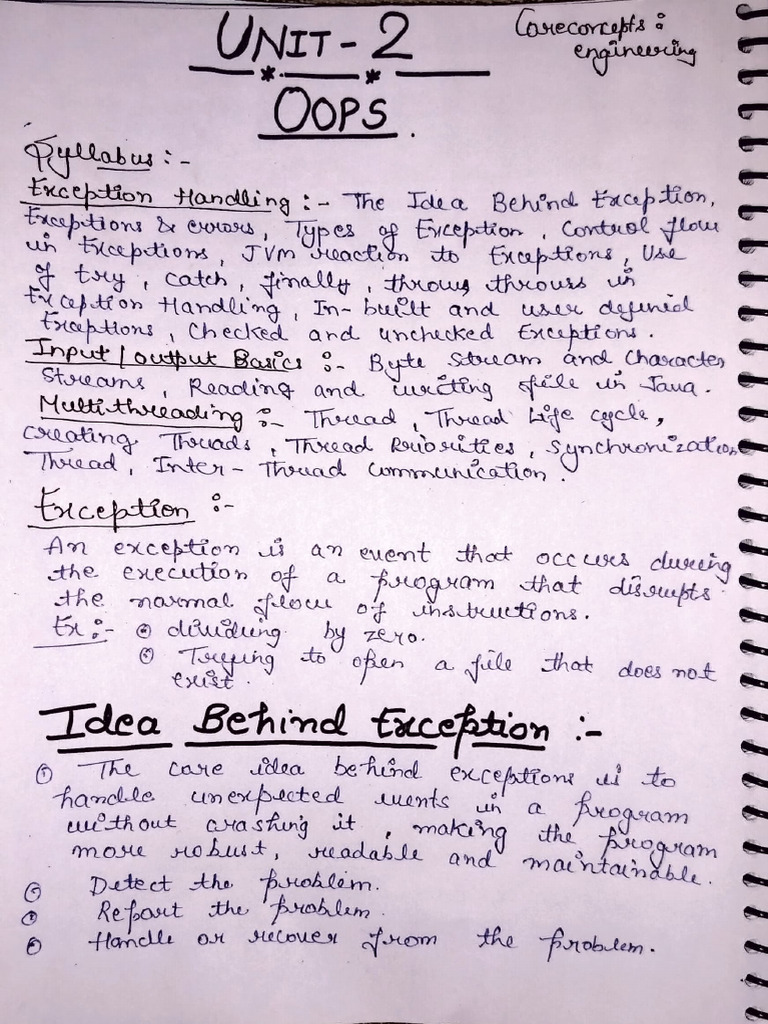 UNIT-2
Coreconcepts:
engineering
OOPS.
Syllabus :-
Exception Handling :- The Idea Behind Exception,
Exceptions & errors, Types of Exception, Control flow
in Exceptions, JVM reaction to Exceptions, Use
of try, catch, finally, throw, throws in
Exception Handling, In-built and user defined
Exceptions, Checked and unchecked Exceptions.
Input/output Basics :- Byte Stream and Character
Streams, Reading and writing file in Java.
Multithreading :- Thread, Thread Life cycle,
Creating Threads, Thread Priorities, Synchronization
Thread, Inter-Thread communication.
Exception :-
An exception is an event that occurs during
the execution of a program that disrupts
the normal flow of instructions.
Ex:- dividing by zero.
Trying to open a file that does not
exist.
Idea Behind Exception :-
The core idea behind exceptions is to
handle unexpected events in a program
without crashing it, making the program
more robust, readable and maintainable.
Detect the problem.
Report the problem.
Handle or recover from the problem.